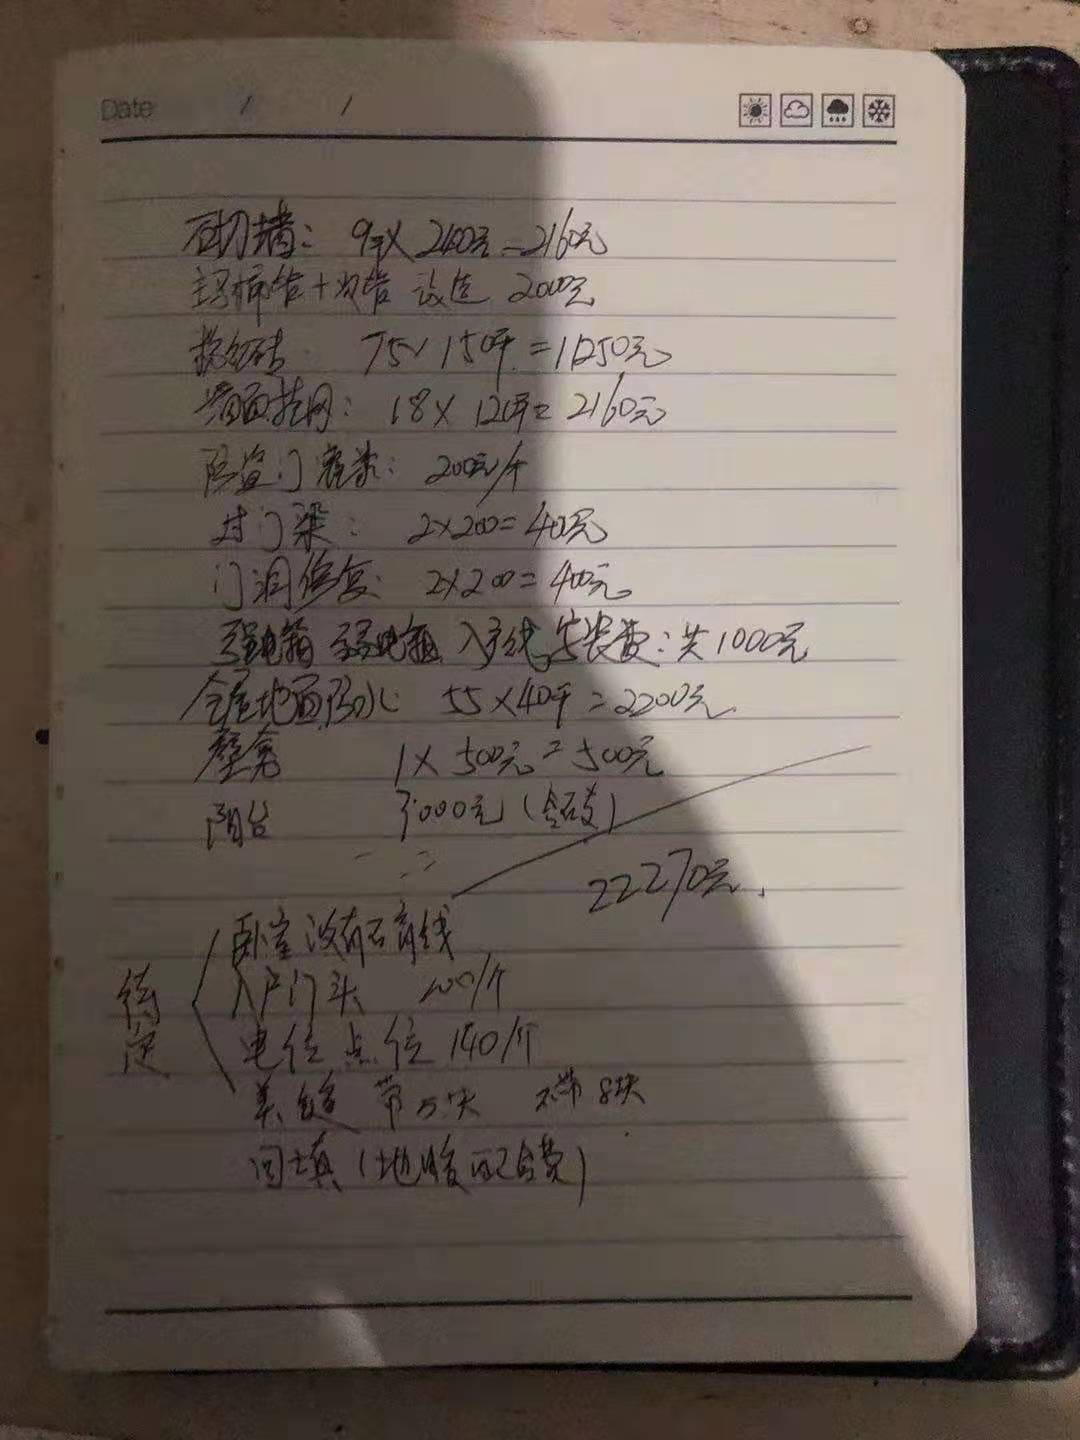 Date / /
砌墙: 9平X 240元=2160元
主排管+次管 改造 2000元
75X150平=11250元
墙面挂网: 18X120平=2160元
防盗门 : 200元/个
过门梁: 2X200=400元
门洞修复: 2X200=400元
强电箱 弱电箱 入户线 安装费:共1000元
全屋地面防水: 55X40平=2200元
壁龛 1X500元=500元
阳台 3000元(含)
22270元.
待定
卧室没有石膏线
入户门头 200/个
电位点位 140/个
美缝 带15块 不带8块
回填(地暖配合费)